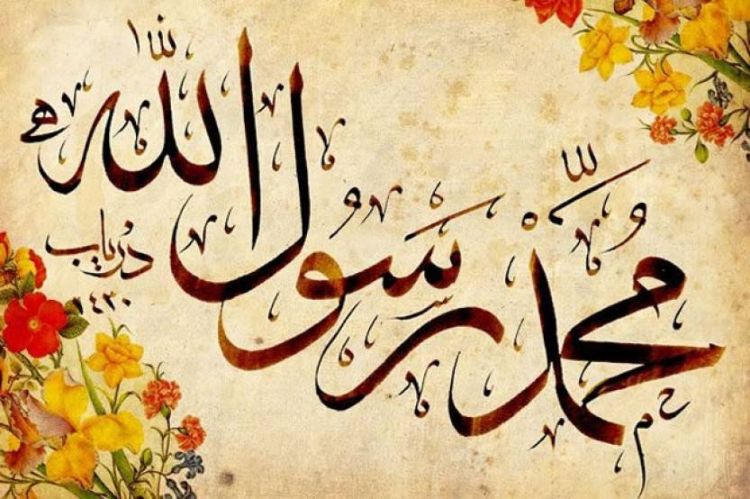 مُحَمَّد رَسُولُ اللّٰه
درياب
١٤٣٠